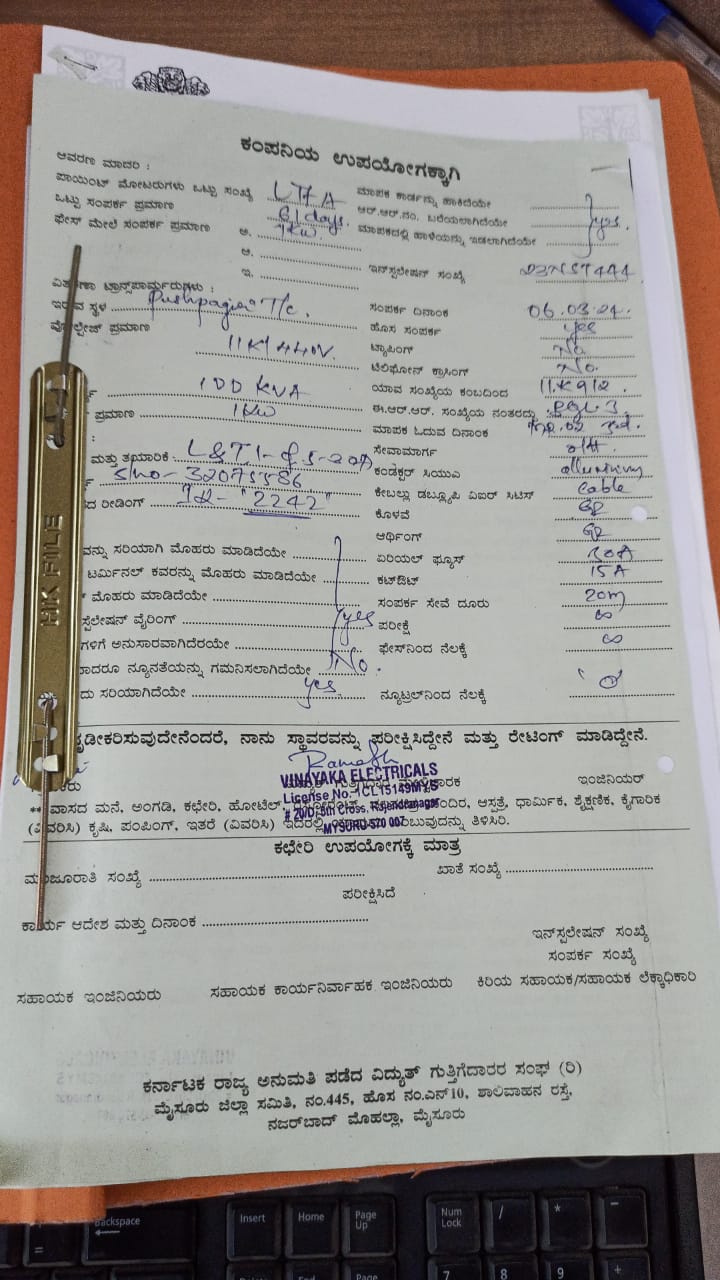 ಕಂಪನಿಯ ಉಪಯೋಗಕ್ಕಾಗಿ
ಆವರಣ ಮಾದರಿ :
ಪಾಯಿಂಟ್ ಮೋಟರುಗಳು ಒಟ್ಟು ಸಂಖ್ಯೆ
ಮಾಪಕ ಕಾರ್ಡನ್ನು ಹಾಕಿದೆಯೇ
ಒಟ್ಟು ಸಂಪರ್ಕ ಪ್ರಮಾಣ
ಆರ್.ಆರ್.ನಂ. ಬರೆಯಲಾಗಿದೆಯೇ yes
ಫೇಸ್ ಮೇಲೆ ಸಂಪರ್ಕ ಪ್ರಮಾಣ ಅ. 1kw
ಮಾಪಕದಲ್ಲಿ ಹಾಳೆಯನ್ನು ಇಡಲಾಗಿದೆಯೇ
ಆ.
ಇ.
ಇನ್‌ಸ್ಟಲೇಷನ್ ಸಂಖ್ಯೆ
ಟ್ರಾನ್ಸ್‌ಫಾರ್ಮರುಗಳು :
ಇರುವ ಸ್ಥಳ Pushpagiri T/c.
ಸಂಪರ್ಕ ದಿನಾಂಕ 06.03.24.
ವೋಲ್ಟೇಜ್ ಪ್ರಮಾಣ
ಹೊಸ ಸಂಪರ್ಕ yes
11K/440V.
ಟ್ಯಾಪಿಂಗ್ No
ಟೆಲಿಫೋನ್ ಕ್ರಾಸಿಂಗ್ No.
100 KVA
ಯಾವ ಸಂಖ್ಯೆಯ ಕಂಬದಿಂದ
ಪ್ರಮಾಣ 1kw
ಈ.ಆರ್.ಆರ್. ಸಂಖ್ಯೆಯ ನಂತರದ್ದು
ಮಾಪಕ ಓದುವ ದಿನಾಂಕ
ಮತ್ತು ತಯಾರಿಕೆ : L&T
ಸೇವಾಮಾರ್ಗ o/H
Slno- 32075586
ಕಂಡಕ್ಟರ್ ಸಿಯುವಿ
ರೀಡಿಂಗ್ "2242"
ಕೇಬಲ್ಲು ಡಬ್ಲ್ಯೂಪಿ ಏಐರ್ ಸಿಟಿಸ್ cable
ಕೊಳವೆ
ಆರ್ಥಿಂಗ್
ವನ್ನು ಸರಿಯಾಗಿ ಮೊಹರು ಮಾಡಿದೆಯೇ
ಏರಿಯಲ್ ಫ್ಯೂಸ್ 30A
ಟರ್ಮಿನಲ್ ಕವರನ್ನು ಮೊಹರು ಮಾಡಿದೆಯೇ
ಕಟ್‌ಔಟ್ 15A
ಮೊಹರು ಮಾಡಿದೆಯೇ
ಸಂಪರ್ಕ ಸೇವೆ ದೂರು 20m
ಸ್ಟಲೇಷನ್ ವೈರಿಂಗ್ yes
ಪರೀಕ್ಷೆ ∞
ಗಳಿಗೆ ಅನುಸಾರವಾಗಿದೆರಯೇ
ಫೇಸ್‌ನಿಂದ ನೆಲಕ್ಕೆ ∞
ನ್ಯೂನತೆಯನ್ನು ಗಮನಿಸಲಾಗಿದೆಯೇ No.
ದು ಸರಿಯಾಗಿದೆಯೇ yes
ನ್ಯೂಟ್ರಲ್‌ನಿಂದ ನೆಲಕ್ಕೆ
ದೃಡೀಕರಿಸುವುದೇನೆಂದರೆ, ನಾನು ಸ್ಥಾವರವನ್ನು ಪರೀಕ್ಷಿಸಿದ್ದೇನೆ ಮತ್ತು ರೇಟಿಂಗ್ ಮಾಡಿದ್ದೇನೆ.
Ramesh
VINAYAKA ELECTRICALS
ಇಂಜಿನಿಯರ್
License No. 1CL15149MYS
# 20/D, 5th Cross, Rajendranagar
MYSURU-570 007
** ವಾಸದ ಮನೆ, ಅಂಗಡಿ, ಕಛೇರಿ, ಹೋಟೆಲ್, ಆಸ್ಪತ್ರೆ, ಧಾರ್ಮಿಕ, ಶೈಕ್ಷಣಿಕ, ಕೈಗಾರಿಕ
(ವಿವರಿಸಿ) ಕೃಷಿ, ಪಂಪಿಂಗ್, ಇತರೆ (ವಿವರಿಸಿ) ಇದರಲ್ಲಿ ತಿಳಿಸಿರಿ.
ಕಛೇರಿ ಉಪಯೋಗಕ್ಕೆ ಮಾತ್ರ
ಮಂಜೂರಾತಿ ಸಂಖ್ಯೆ
ಖಾತೆ ಸಂಖ್ಯೆ
ಪರೀಕ್ಷಿಸಿದೆ
ಕಾರ್ಯ ಆದೇಶ ಮತ್ತು ದಿನಾಂಕ
ಇನ್‌ಸ್ಪಲೇಷನ್ ಸಂಖ್ಯೆ
ಸಂಪರ್ಕ ಸಂಖ್ಯೆ
ಸಹಾಯಕ ಇಂಜಿನಿಯರು ಸಹಾಯಕ ಕಾರ್ಯನಿರ್ವಾಹಕ ಇಂಜಿನಿಯರು ಕಿರಿಯ ಸಹಾಯಕ/ಸಹಾಯಕ ಲೆಕ್ಕಾಧಿಕಾರಿ
ಕರ್ನಾಟಕ ರಾಜ್ಯ ಅನುಮತಿ ಪಡೆದ ವಿದ್ಯುತ್ ಗುತ್ತಿಗೆದಾರರ ಸಂಘ (ರಿ)
ಮೈಸೂರು ಜಿಲ್ಲಾ ಸಮಿತಿ, ನಂ.445, ಹೊಸ ನಂ.ಎನ್10, ಶಾಲಿವಾಹನ ರಸ್ತೆ,
ನಜರ್‌ಬಾದ್ ಮೊಹಲ್ಲಾ, ಮೈಸೂರು
HK FILE
Backspace
Insert
Home
Page Up
Num Lock
/
*
-
=
7
8
9
+